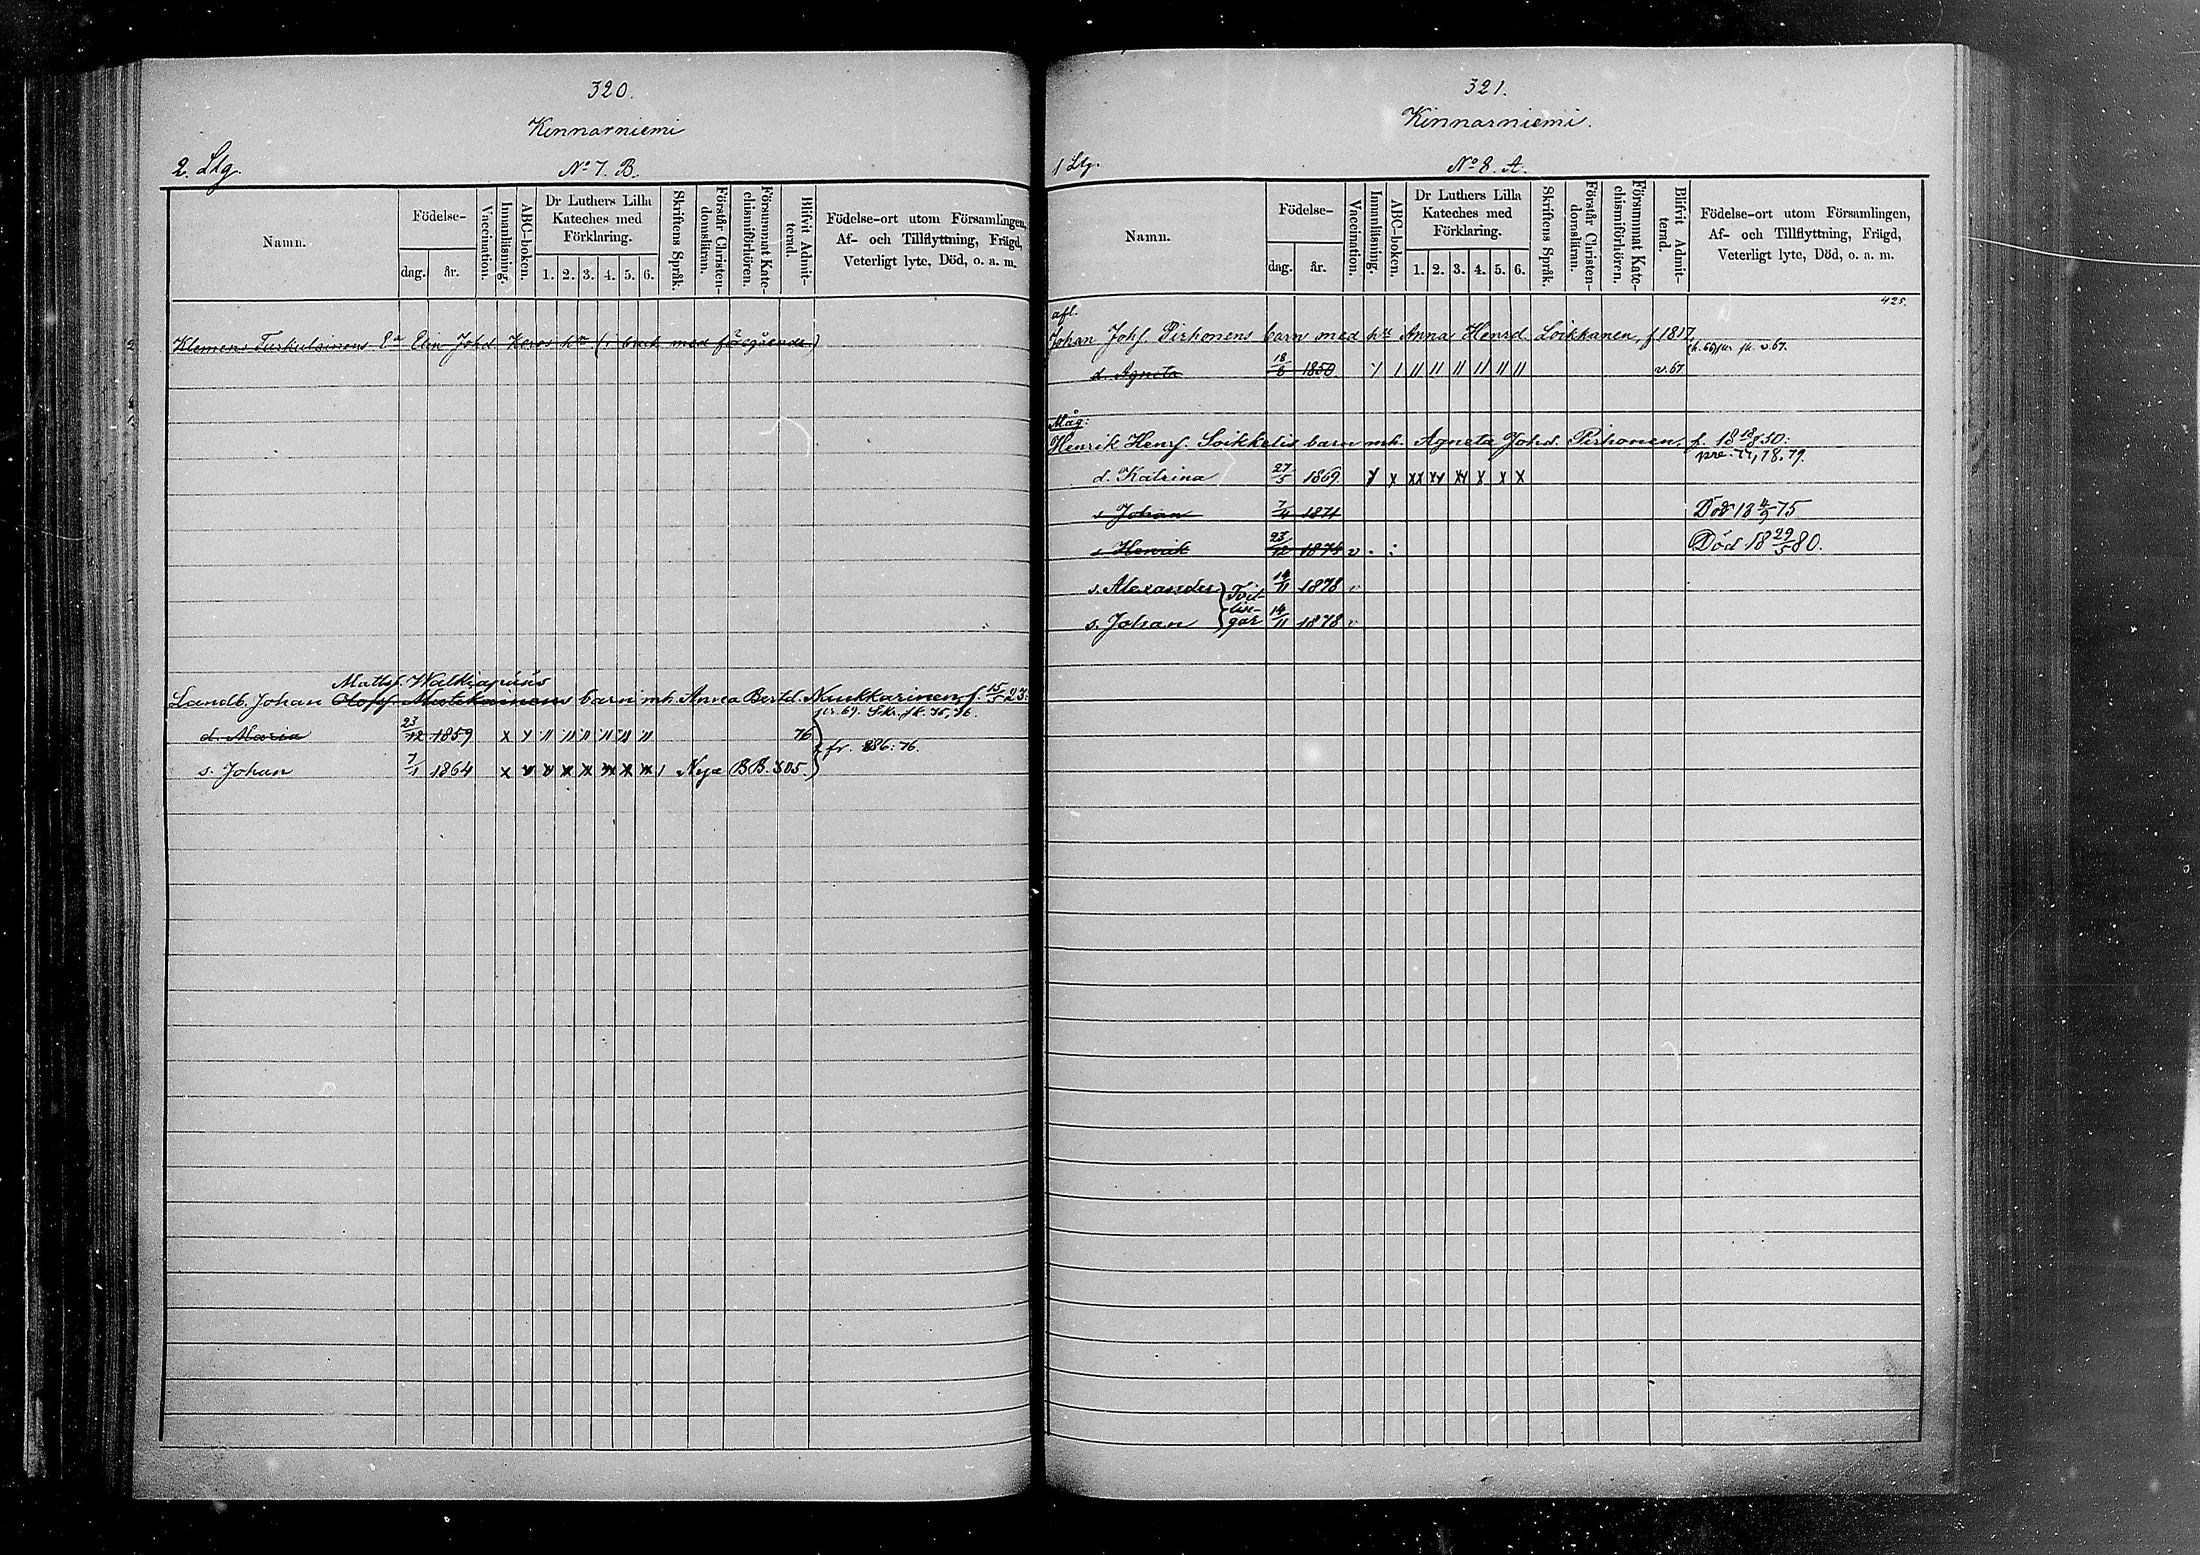 320.
Kinnarniemi
2. Ltg.
No 7. B.
Namn.
Födelse-
dag. år.
Vaccination.
Innanläsning.
ABC-bokon.
Dr Luthers Lilla Kateches med Förklaring.
1. 2. 3. 4. 5. 6.
Skriftens Språk.
Förstår Christendomsläran.
Försummat Katechismiförhören.
Blifvit Admitterad.
Födelse-ort utom Församlingen,
Af- och Tillflyttning, Frägd,
Veterligt lyte, Död, o. a. m.
Klemens Turkulainens Elin Johd
Mattsf. Walkiapääs
Landb. Johan Olofsf. barn mh. Anna Bertd. Nuukkarinen, f. 15/5 23:
d. Maria 23/12 1859 x x 11 11 11 11 11 11 76
fr. 886: 76.
s. Johan 7/1 1864 Nya BB. 305.
321.
Kinnarniemi.
1 Ltg.
No 8. A.
Namn.
Födelse-
dag. år.
Vaccination.
Innanläsning.
ABC-bokon.
Dr Luthers Lilla Kateches med Förklaring.
1. 2. 3. 4. 5. 6.
Skriftens Språk.
Förstår Christendomsläran.
Försummat Katechismiförhören.
Blifvit Admitterad.
Födelse-ort utom Församlingen,
Af- och Tillflyttning, Frägd,
Veterligt lyte, Död, o. a. m.
425.
afl.
Johan Johf. Pirhonens barn med Anna Henrd. Loikkanen, f 1817,
d. Agneta 18/8 1850 v. 67
Måg:
Henrik Henrf. Soikkelis barn mh. Agneta Johd. Pirhonen, f. 18 18/8 50:
d. Katrina 27/5 1869 x x xx xx xx x x x
s Johan 7/4 1871 Död 18 4/9 75
s Henrik 23/12 1875 v Död 18 29/5 80.
s. Alexander 14/11 1878 v
Tvillingar
s. Johan 14/11 1878 v